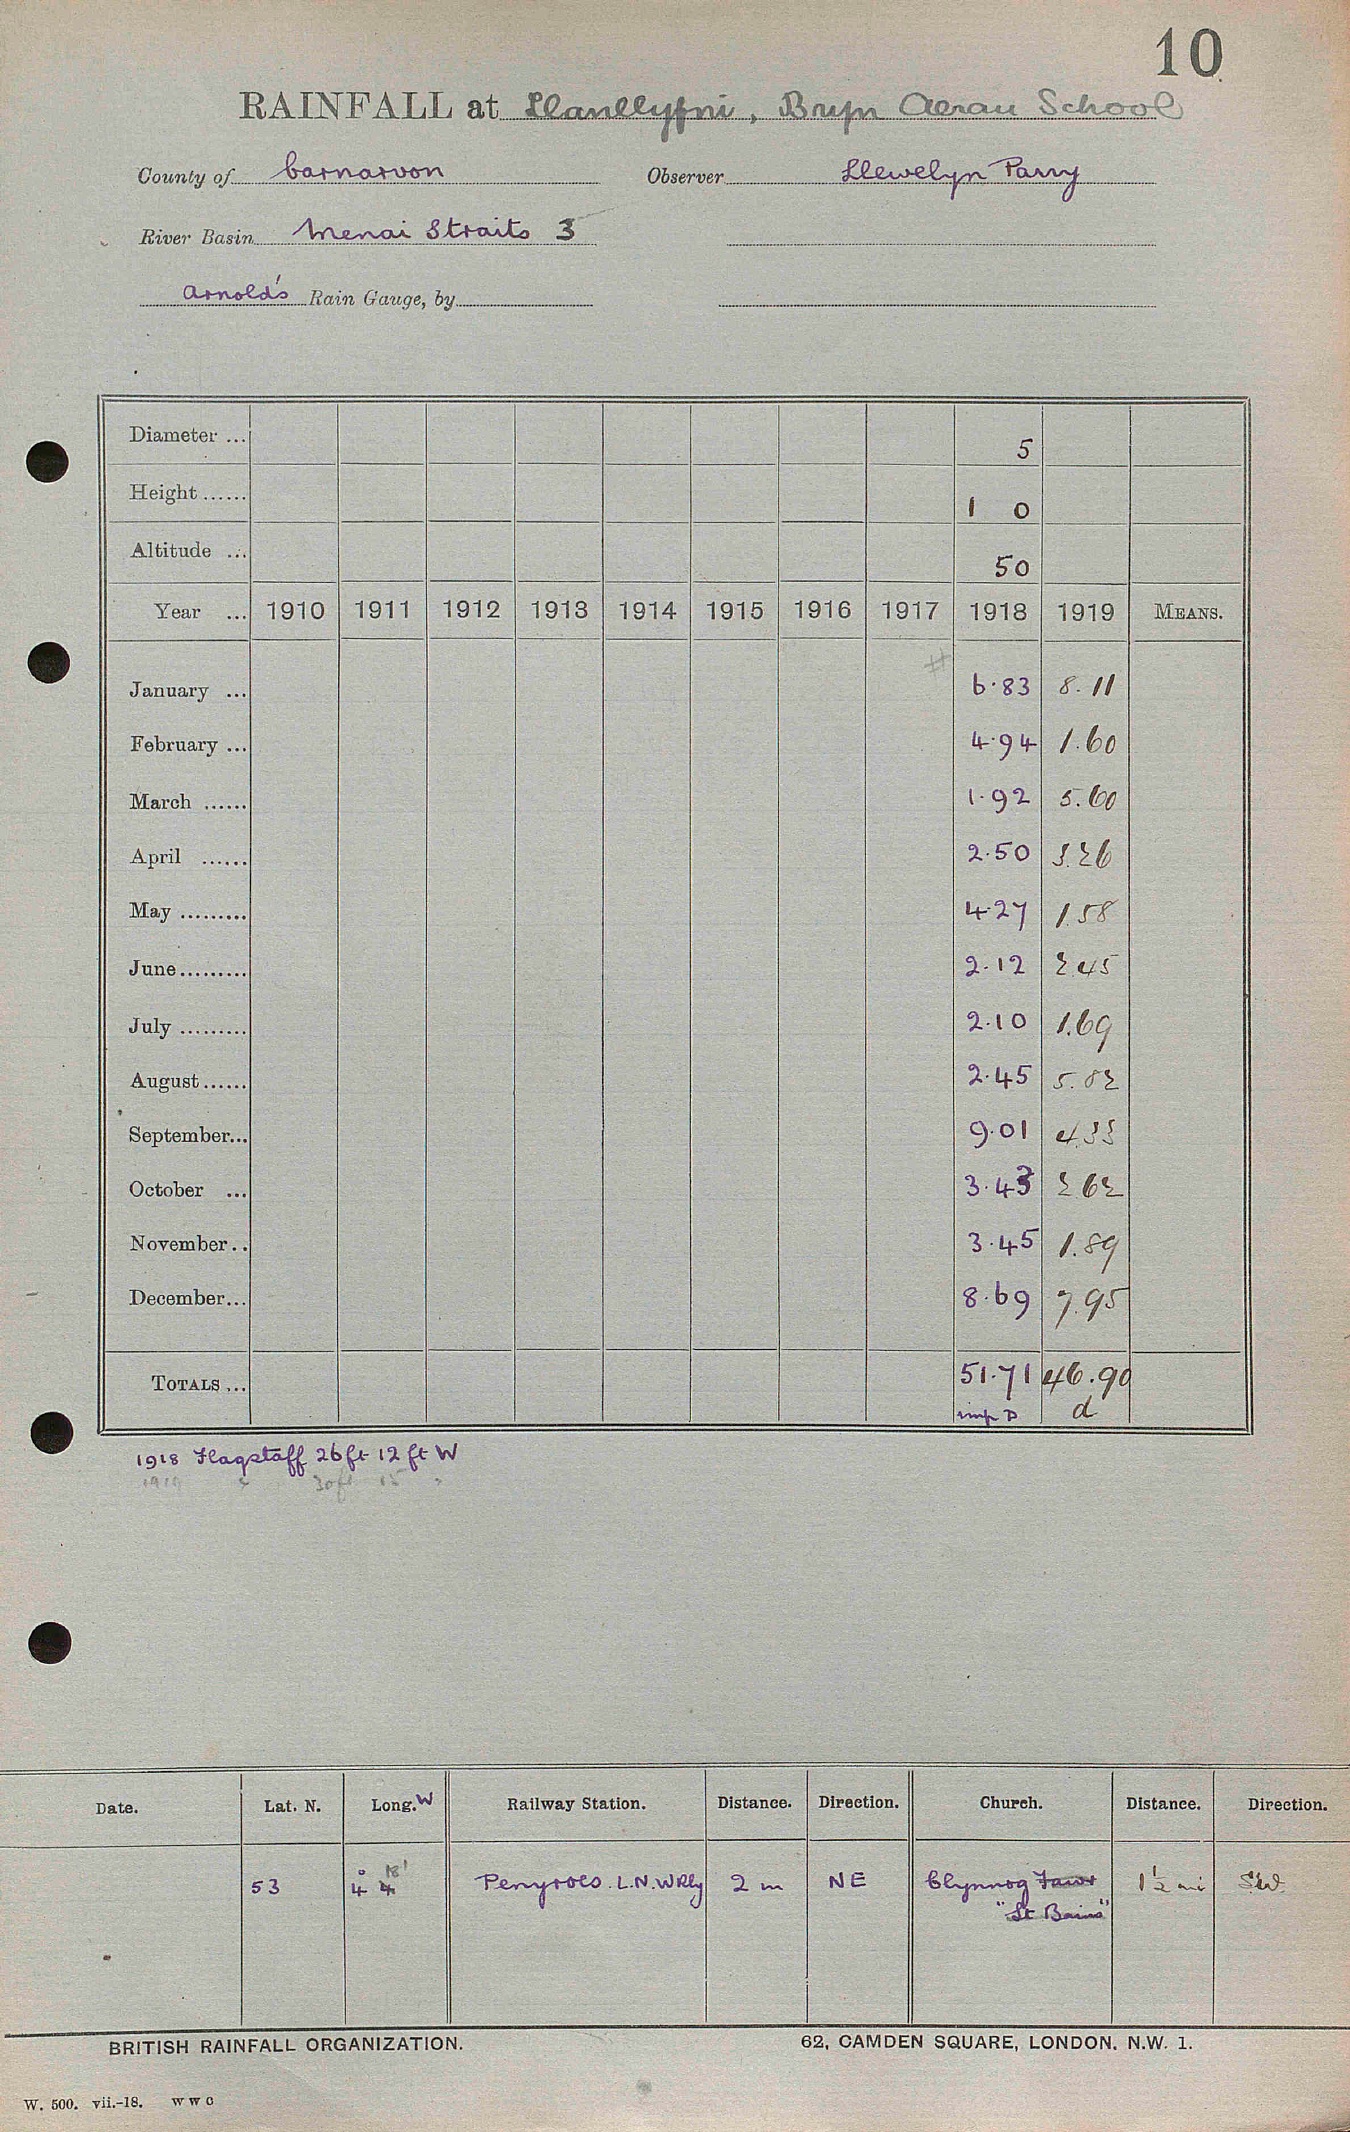 10
RAINFALL at Llanllyfni, Bryn Aerau School
County of Carnarvon Observer Llewelyn Parry
River Basin Menai Straits 3
Arnold's Rain Gauge, by
Diameter ... 5
Height ...... 1 0
Altitude ... 50
Year ... 1910 1911 1912 1913 1914 1915 1916 1917 1918 1919 MEANS.
#
January ... 6.83 8.11
February ... 4.94 1.60
March ...... 1.92 5.60
April ...... 2.50 3.26
May ......... 4.27 1.58
June ......... 2.12 2.45
July ......... 2.10 1.69
August ...... 2.45 5.82
September... 9.01 4.33
October ... 3.43 2.62
November.. 3.45 1.89
December... 8.69 7.95
TOTALS ... 51.71 46.90
imp D d
1918 Flagstaff 26ft 12ft W
1919 " 30ft 15 "
Date. Lat. N. Long. W Railway Station. Distance. Direction. Church. Distance. Direction.
18'
53 4° 4 Penygroes L.N.W Rly 2 m NE Clynnog Fawr 1½ mi SW
"St Bains"
BRITISH RAINFALL ORGANIZATION. 62, CAMDEN SQUARE, LONDON. N.W. 1.
W. 500. vii.-18. W W C